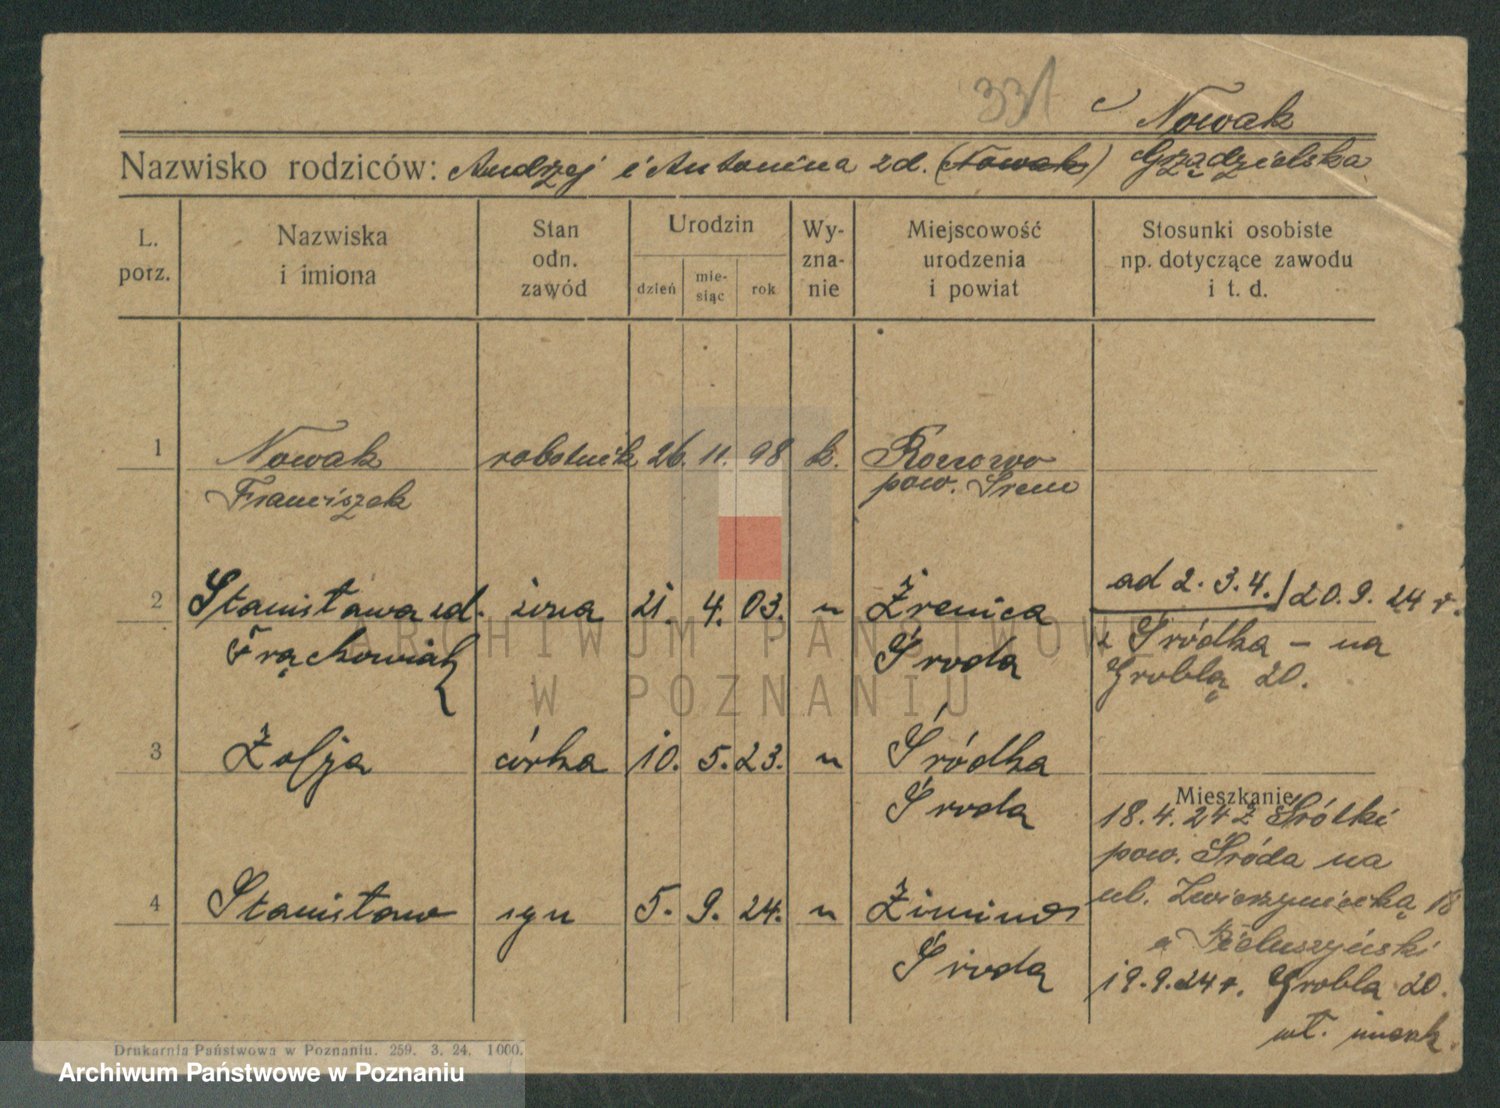 331
Nowak
Nazwisko rodziców: Andrzej i Antonina zd. (Nowak) Grządzielska
L. porz.
Nazwiska i imiona
Stan odn. zawód
Urodzin
dzień
mie-siąc
rok
Wy-zna-nie
Miejscowość urodzenia i powiat
Stosunki osobiste np. dotyczące zawodu i t. d.
1 Nowak robotnik 26. 11. 98 k.
Franciszek pow. Śrem
2 Stanisława zd. żona 21. 4. 03. " Żrenica ad 2. 3. 4./20. 9. 24 r.
Frąckowiak Środa z Śródka - na
Groblą 20.
3 Zofja córka 10. 5. 23. " Śródka
Środa
Mieszkanie
18. 4. 24 z
4 Stanisław syn 5. 9. 24. "
Środa
pow. Środa na
ul. Zwierzyniecką 18
19. 9. 24 r. Grobla 20.
wł. mieszk.
Drukarnia Państwowa w Poznaniu. 259. 3. 24. 1000.
ARCHIWUM PAŃSTWOWE
W POZNANIU
Archiwum Państwowe w Poznaniu